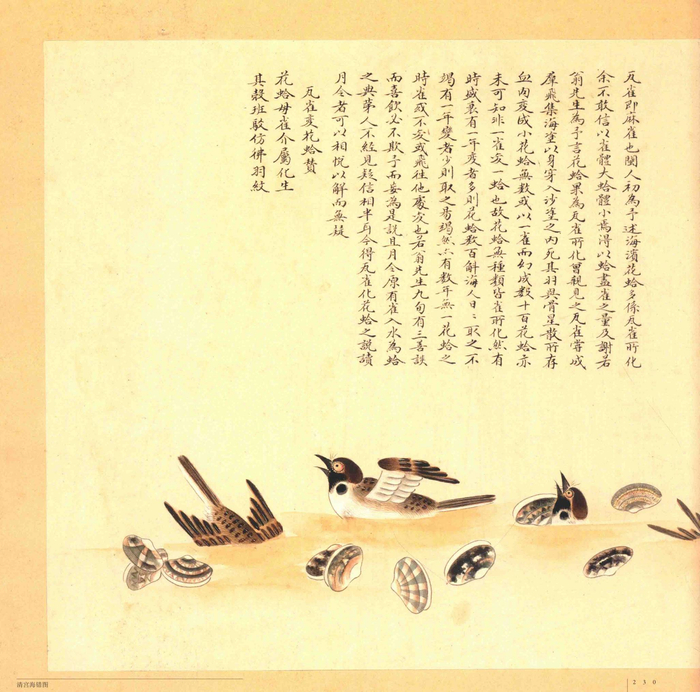 瓦雀即麻雀也閩人初為予述海濱花蛤多係瓦雀所化
余不敢信以雀體大蛤體小焉得以蛤盡雀之量及謝若
翁先生為予言花蛤果為瓦雀所化曾親見之瓦雀嘗成
羣飛集海塗以身穿入沙塗之内死其羽與骨星散所存
血肉変成小花蛤無数或以一雀而幻成数十百花蛤亦
未可知非一雀変一蛤也故花蛤無種類皆雀所化然有
時盛衰有一年変者多則花蛤数百斛海人日日取之不
竭有一年變者少則取之易竭然亦有数年無一花蛤之
時雀或不変或飛往他處変也若翁先生九旬有三善談
而喜飲必不欺予而妄為是説且月令原有雀入水為蛤
之典第人不經見疑信相半耳今得瓦雀化花蛤之説讀
月令者可以相悦以解而無疑
瓦雀変花蛤賛
花蛤母雀介屬化生
其殼班駁仿彿羽紋
清宫海错图
230